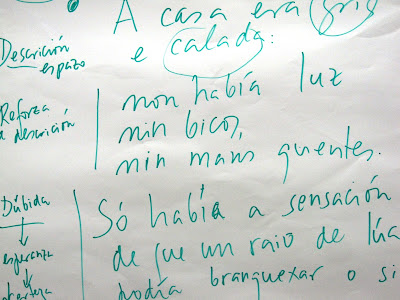 A casa era gris
e calada:
Descrición
espazo
Reforza
a descrición
non había luz
nin bicos,
nin mans quentes.
Dúbida
esperanza
Só había a sensación
de que un raio de lúa
podía branquexar o si